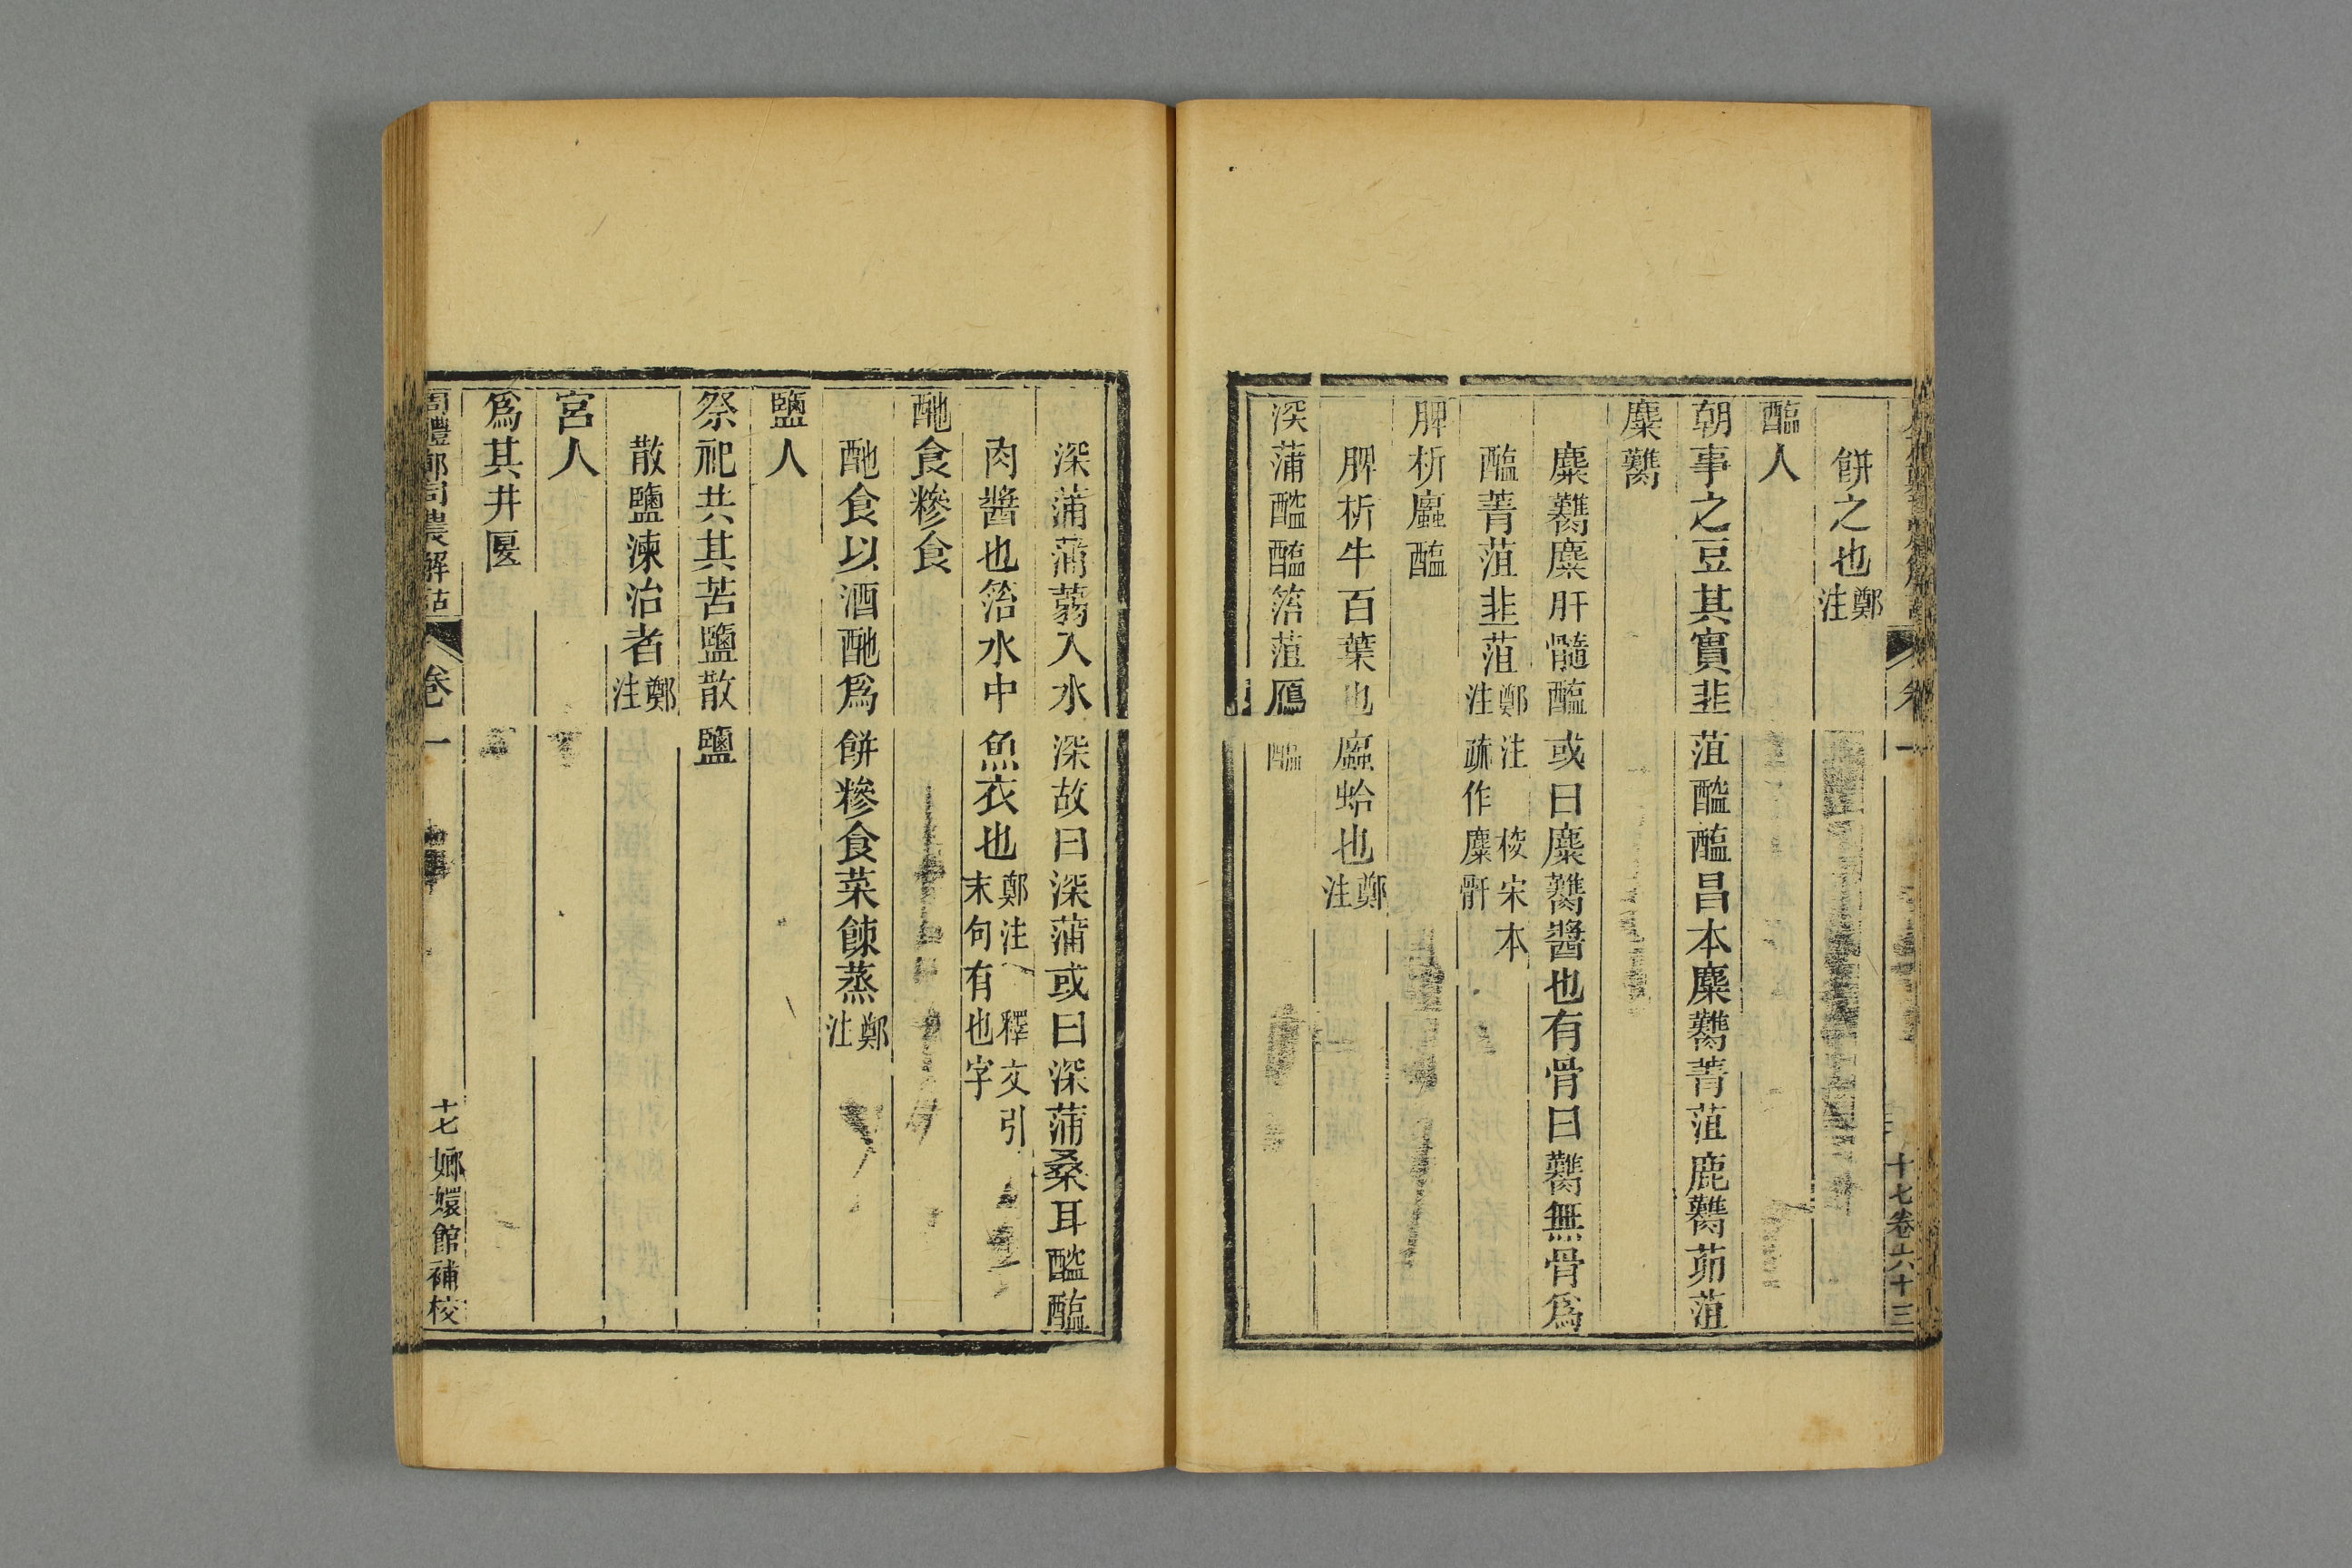 餅之也鄭注
醢人
朝事之豆其實韭菹醓醢昌本麋臡菁菹鹿臡茆菹
麋臡
麋臡麋肝髓醢或曰麋臡醬也有骨曰臡無骨爲
醢菁菹韭菹鄭注注疏作麋骭校宋本
脾析蠯醢
脾析牛百葉也蠯蛤也鄭注
深蒲醓醢箈菹鴈醢
十七卷六十三
深蒲蒲蒻入水深故曰深蒲或曰深蒲桑耳醓醢
肉醬也箈水中魚衣也鄭注釋文引末句有也字
酏食糝食
酏食以酒酏爲餅糝食菜餗蒸鄭注
鹽人
祭祀共其苦鹽散鹽
散鹽湅治者鄭注
宮人
爲其井匽
周禮鄭司農解詁 卷一 十七 嫏嬛館補校